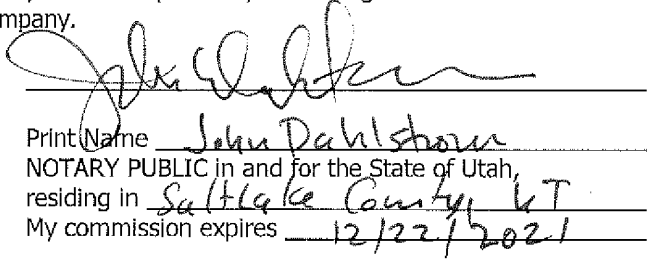 mpany.
Print Name John Dahlstrom
NOTARY PUBLIC in and for the State of Utah,
residing in Saltlake County, UT
My commission expires 12/22/2021